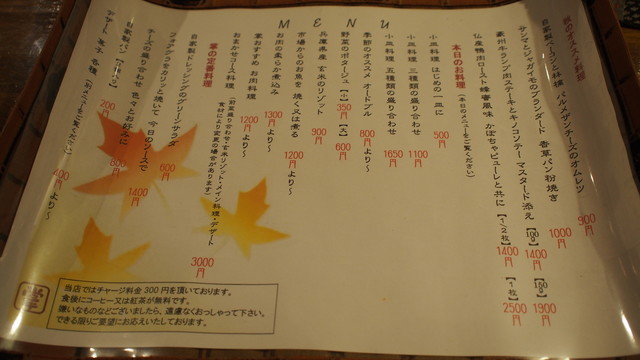 MENU
秋のオススメ料理
自家製ベーコンと林檎 パルメザンチーズのオムレツ 900円
サンマとジャガイモのブランダード 香草パン粉焼き 1000円
豪州牛ランプ肉ステーキとキノコソテー マスタード添え 【100g】1400円 【150g】1900円
仏産鴨肉ロースト蜂蜜風味 かぼちゃピューレと共に 【1/2枚】1400円 【1枚】2500円
本日のお料理 (本日のメニューをご覧ください)
小皿料理 はじめの一皿に 500円
小皿料理 三種類の盛り合わせ 1100円
小皿料理 五種類の盛り合わせ 1650円
季節のオススメ オードブル 800円より〜
野菜のポタージュ 【小】350円 【大】600円
兵庫県産 玄米のリゾット 900円
市場からのお魚を 焼く又は煮る 1200円より〜
お肉の柔らか煮込み 1300円より〜
家おすすめ お肉料理 1200円より〜
おまかせコース料理
(前菜盛り合わせ・玄米リゾット・メイン料理・デザート
食材により変更の場合があります)
3000円
家の定番料理
自家製ドレッシングのグリーンサラダ 600円
フォアグラをカリッと焼いて 今日のソースで 1400円
チーズの盛り合わせ 色々とお好みに 800円
自家製パン 200円
デザート 菓子 各種 (別メニューをご覧ください) 400円より〜
当店ではチャージ料金300円を頂いております。
食後にコーヒー又は紅茶が無料です。
嫌いなものなどございましたら、遠慮なくおっしゃって下さい。
できる限りご要望にお応えいたしております。